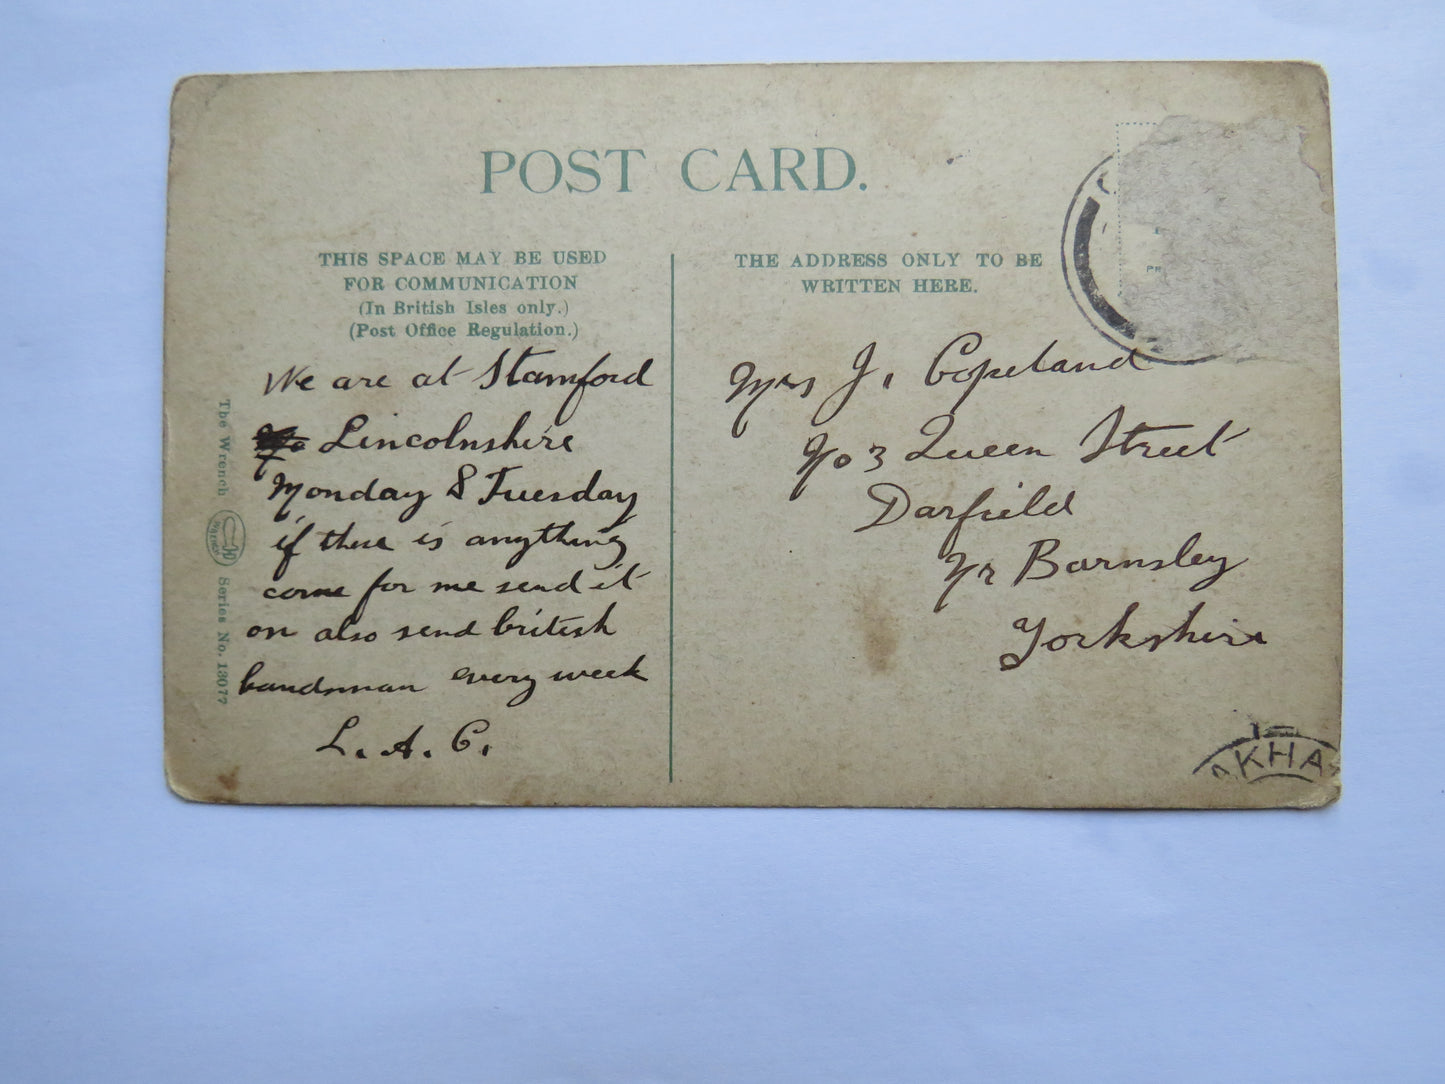 POST CARD.
THIS SPACE MAY BE USED
FOR COMMUNICATION
(In British Isles only.)
(Post Office Regulation.)
THE ADDRESS ONLY TO BE
WRITTEN HERE.
We are at Stamford
Lincolnshire
Monday & Tuesday
if there is anything
come for me send it
on also send british
bandsman every week
L. A. C.
Mrs J. Copeland
No 3 Queen Street
Darfield
Nr Barnsley
Yorkshire
The Wrench Series No. 13077
PR
KHA